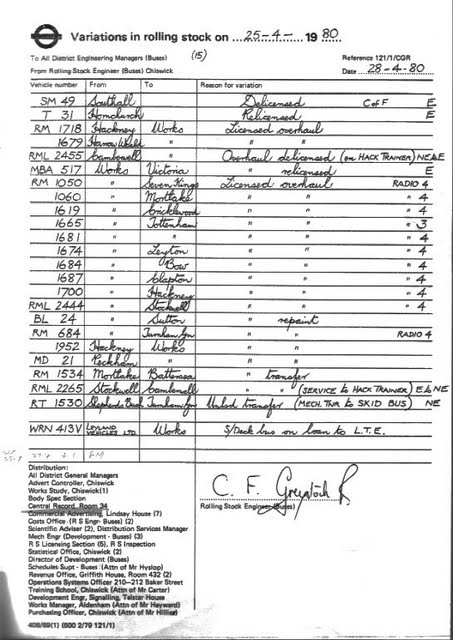 Variations in rolling stock on 25-4- 1980
To All District Engineering Managers (Buses) (15) Reference 121/1/CGR
From Rolling Stock Engineer (Buses) Chiswick Date 28-4-80
Vehicle number From To Reason for variation
SM 49 Southall Delicensed C of F E
T 31 Hornchurch Relicensed E
RM 1718 Hackney Works Licensed overhaul
1679 Harrow Weald " " "
RML 2455 Camberwell " Overhaul delicensed (on HACK TRAINER) NE&E
MBA 517 Works Victoria " relicensed E
RM 1050 " Seven Kings Licensed overhaul RADIO 4
1060 " Mortlake " " " 4
1619 " Cricklewood " " " 4
1665 " Tottenham " " " 3
1681 " " " " " 4
1674 " Leyton " " " 4
1684 " Bow " " " 4
1687 " Clapton " " " 4
1700 " Hackney " " " 4
RML 2444 " Stockwell " " " 4
BL 24 " Sutton " repaint
RM 684 " Turnham Gn " " RADIO 4
1952 Hackney Works " "
MD 21 Peckham " " "
RM 1534 Mortlake Battersea " transfer
RML 2265 Stockwell Camberwell " " (SERVICE to HACK TRAINER) E&NE
RT 1530 Shepherds Bush Turnham Gn Unlsd transfer (MECH. TNR to SKID BUS) NE
WRN 413V LEYLAND VEHICLES LTD. Works S/Deck bus on loan to L.T.E.
Distribution:
All District General Managers
Advert Controller, Chiswick
Works Study, Chiswick(1)
Body Spec Section
Central Record, Room 34
Commercial Advertising, Lindsay House (7)
Costs Office (R S Engr- Buses) (2)
Scientific Adviser (2), Distribution Services Manager
Mech Engr (Development - Buses) (3)
R S Licensing Section (5), R S Inspection
Statistical Office, Chiswick (2)
Director of Development (Buses)
Schedules Supt - Buses (Attn of Mr Hyslop)
Revenue Office, Griffith House, Room 432 (2)
Operations Systems Officer 210-212 Baker Street
Training School, Chiswick (Attn of Mr Carter)
Development Engr, Signalling, Telstar House
Works Manager, Aldenham (Attn of Mr Hayward)
Purchasing Officer, Chiswick (Attn of Mr Hillier)
C. F.
Rolling Stock Engineer (Buses)
408/89(1) (500 2/79 121/1)